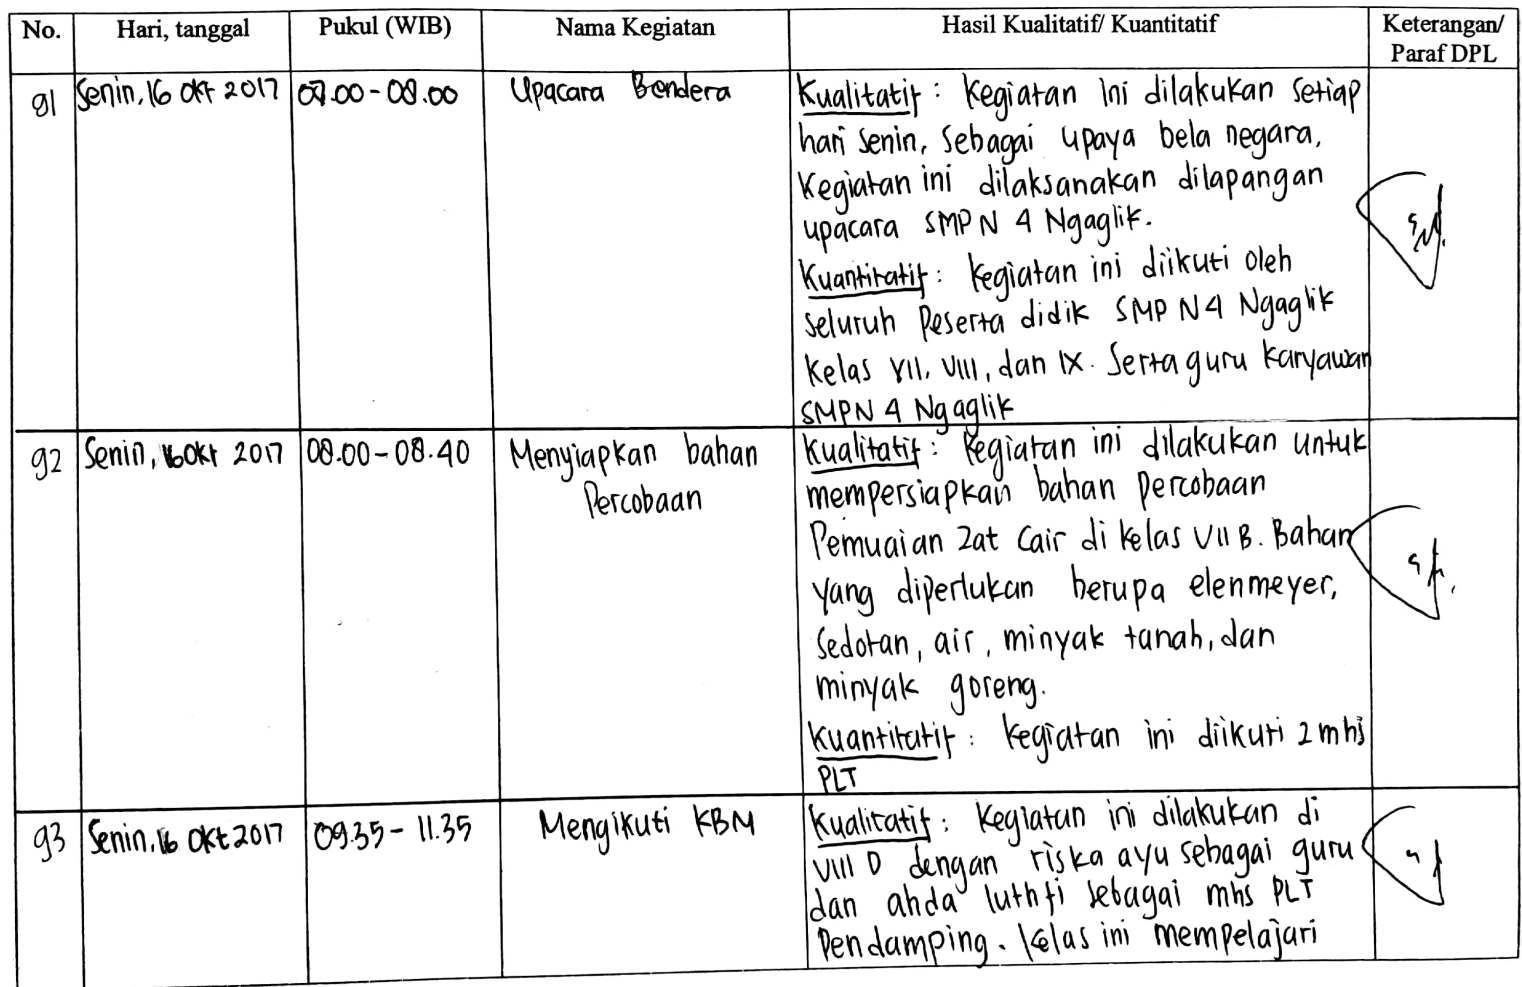 No. Hari, tanggal Pukul (WIB) Nama Kegiatan Hasil Kualitatif/ Kuantitatif Keterangan/
Paraf DPL
91 Senin, 16 Okt 2017 07.00 - 08.00 Upacara Bendera Kualitatif : Kegiatan ini dilakukan setiap
hari Senin, sebagai upaya bela negara,
Kegiatan ini dilaksanakan dilapangan
upacara SMP N 4 Ngaglik.
Kuantitatif : kegiatan ini diikuti oleh
seluruh Peserta didik SMP N 4 Ngaglik
Kelas VII, VIII, dan IX. Serta guru karyawan
SMPN 4 Ngaglik
92 Senin, 16 Okt 2017 08.00 - 08.40 Menyiapkan bahan Kualitatif : Kegiatan ini dilakukan untuk
Percobaan mempersiapkan bahan Percobaan
Pemuaian Zat Cair di kelas VII B. Bahan
yang diperlukan berupa elenmeyer,
Sedotan, air, minyak tanah, dan
minyak goreng.
Kuantitatif : kegiatan ini diikuti 2 mhs
PLT
93 Senin, 16 Okt 2017 09.35 - 11.35 Mengikuti KBM Kualitatif : Kegiatan ini dilakukan di
VIII D dengan riska ayu sebagai guru
dan ahda luthfi sebagai mhs PLT
Pendamping. Kelas ini mempelajari